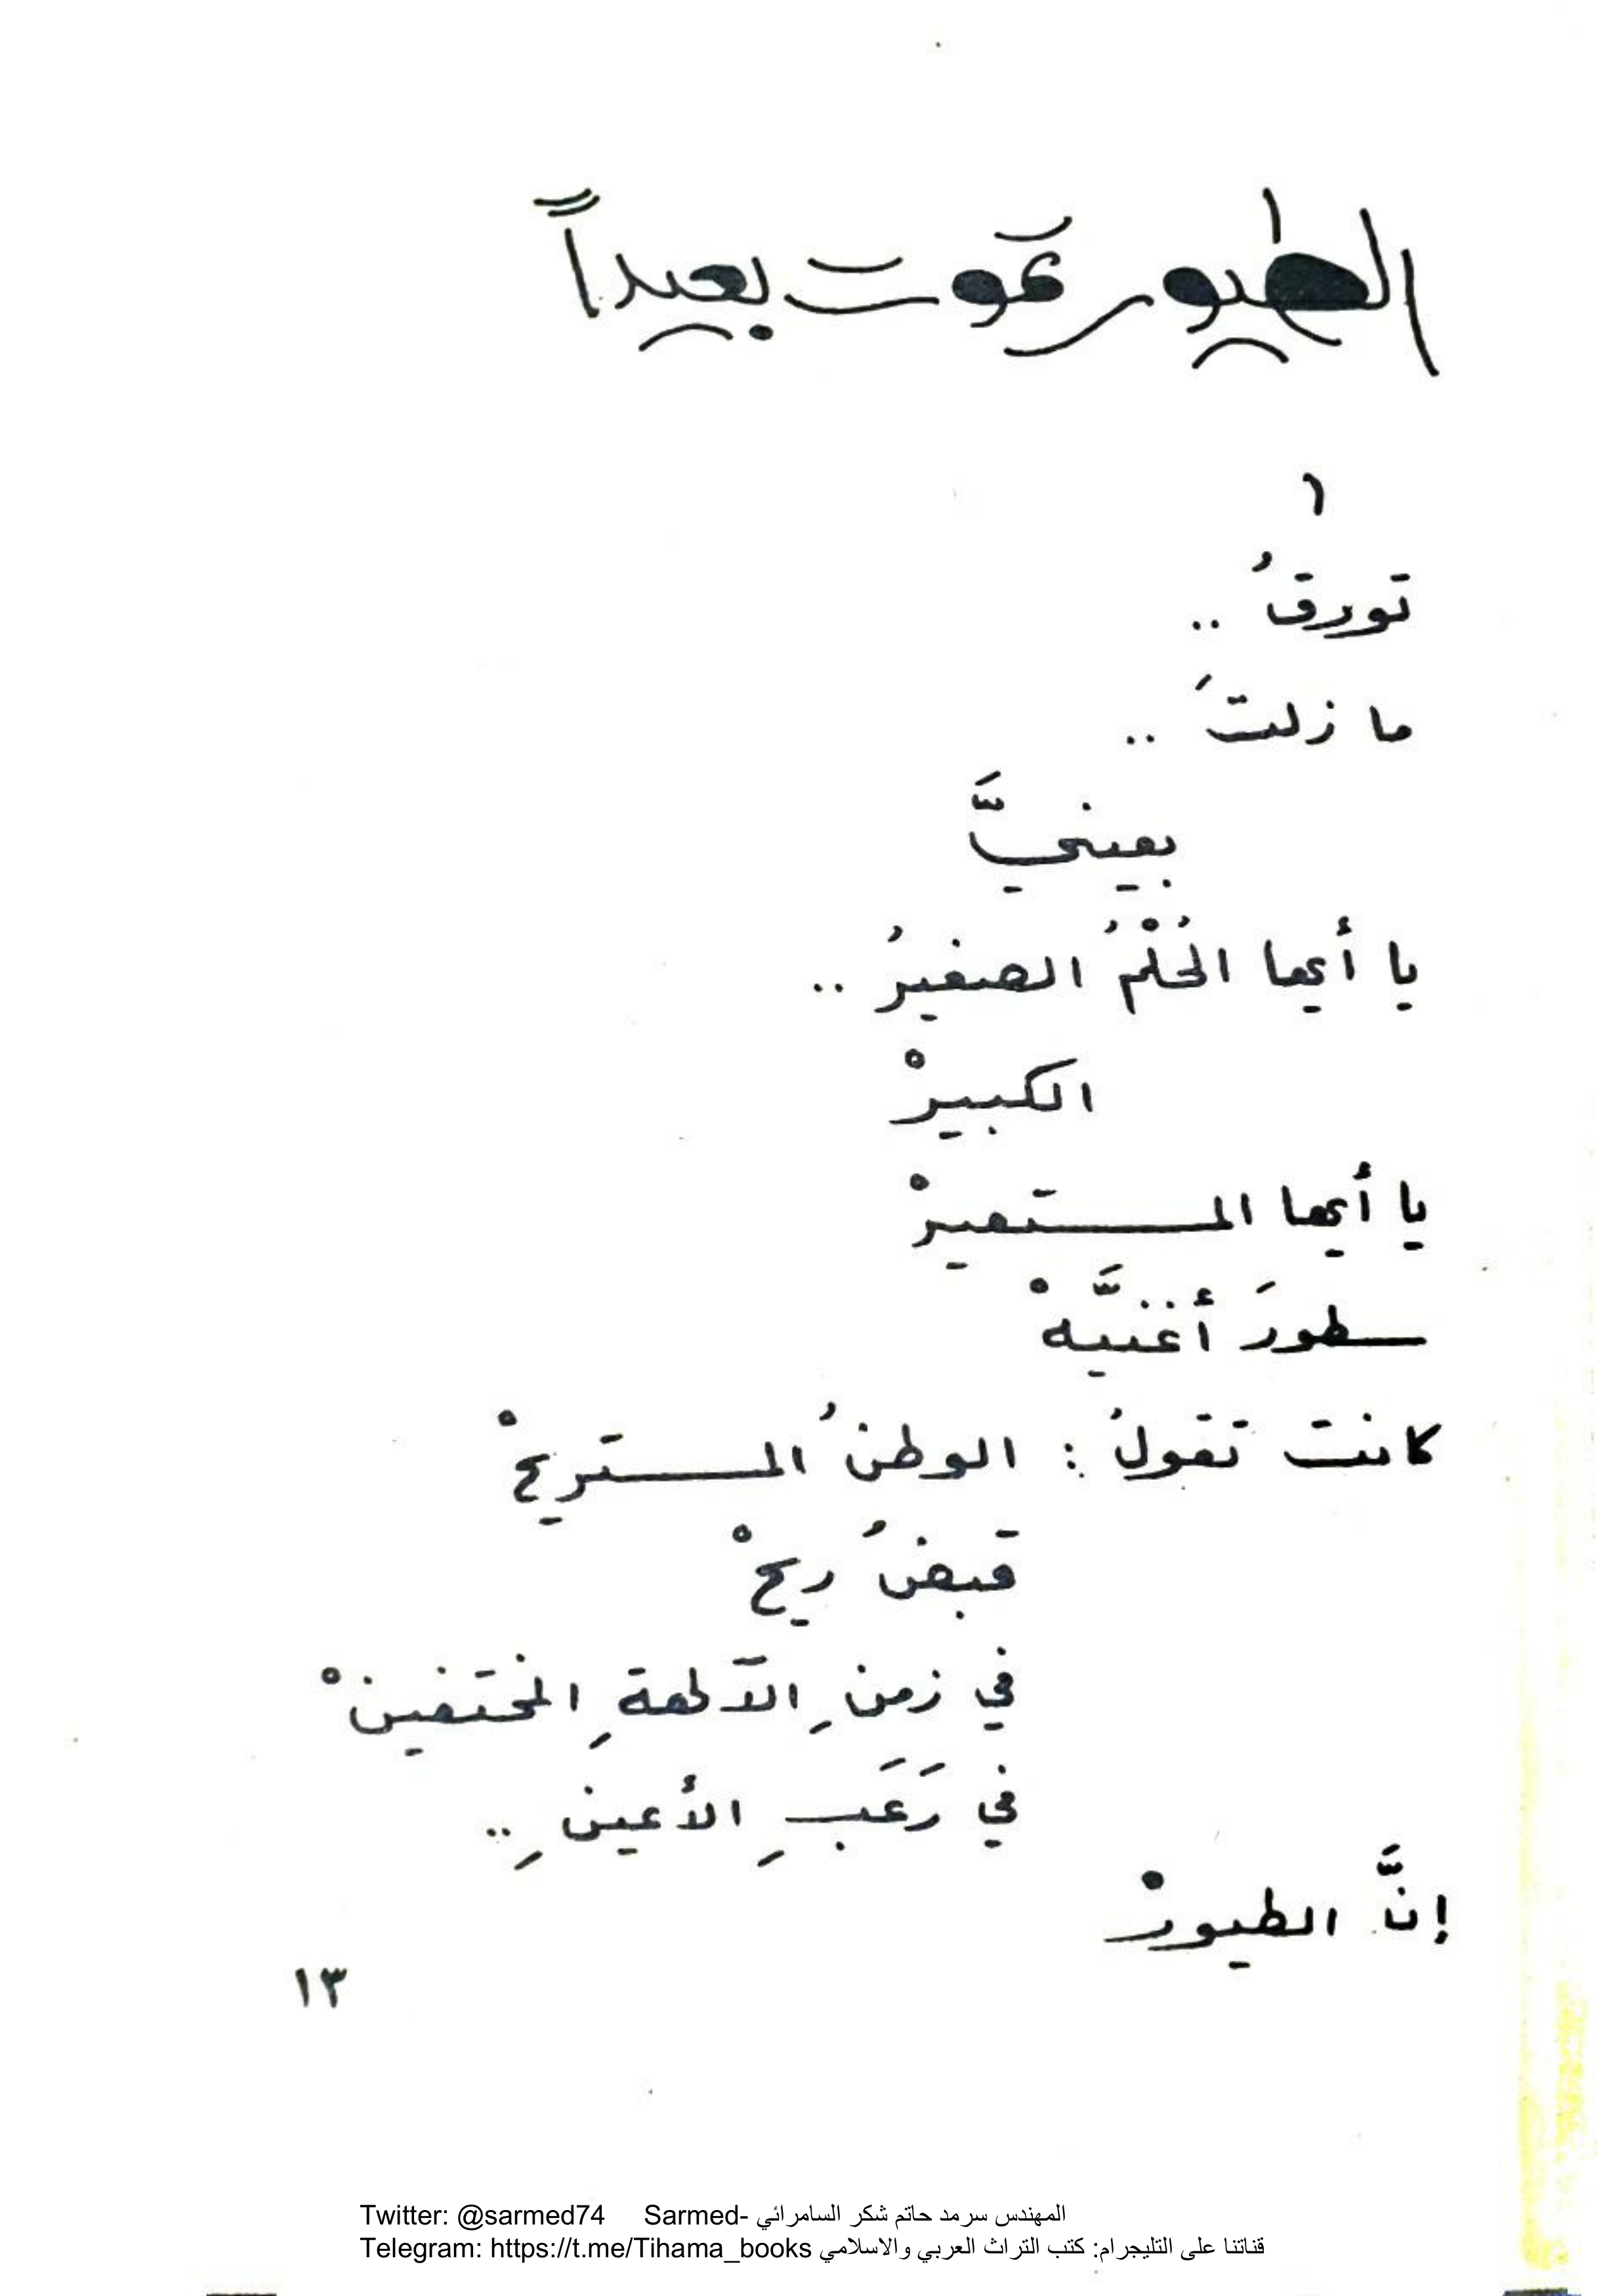 الطيور تموت بعيداً
١
تورقُ ..
ما زلتَ ..
بعينيَّ
يا أيها الحُلْمُ الصغيرُ ..
الكبيرْ
يا أيها المستعيرْ
سطورَ أغنيَّهْ
كانت تقولُ : الوطنُ المستريحْ
قبضُ ريحْ
في زمنِ الآلهةِ المختفينْ
في رَعَبِ الأعينِ ..
إنَّ الطيورْ
١٣
Twitter: @sarmed74 Sarmed- المهندس سرمد حاتم شكر السامرائي
Telegram: https://t.me/Tihama_books قناتنا على التليجرام: كتب التراث العربي والاسلامي